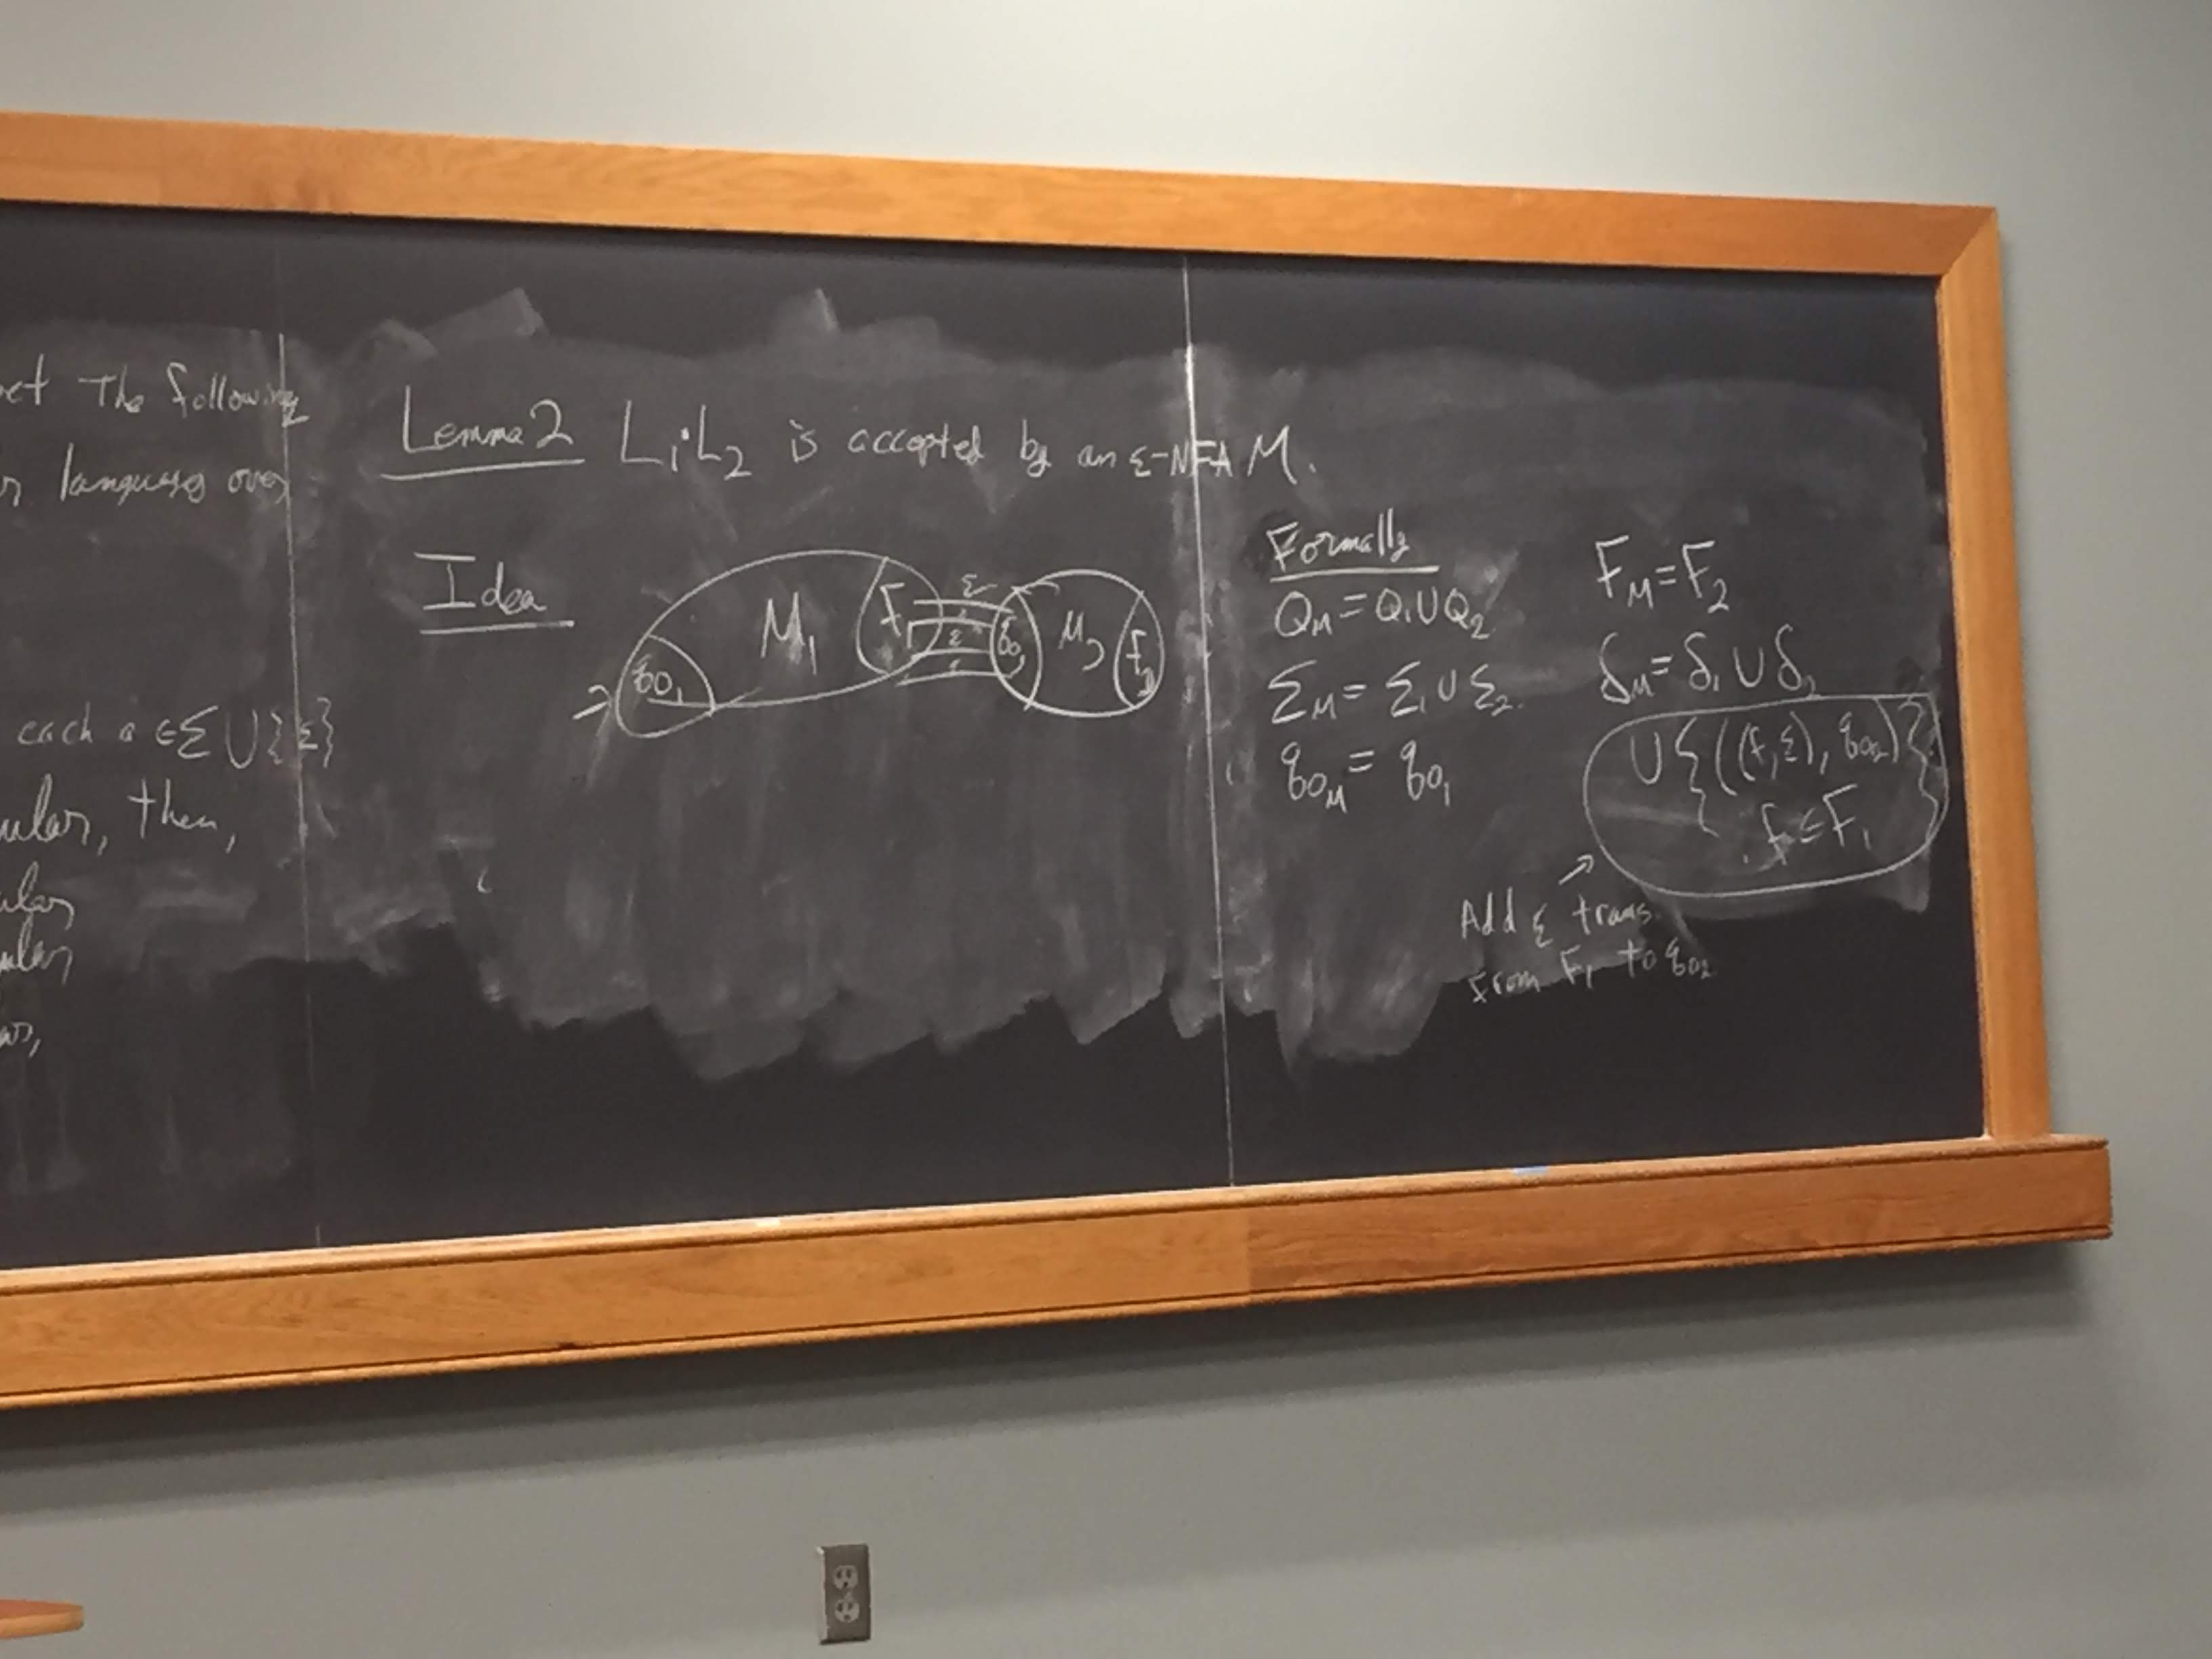 The following
languages over
each a ∈ Σ ∪ {ε}
then,
Lemma 2 L₁·L₂ is accepted by an ε-NFA M.
Idea
M₁ F₁ ε ε ε M₂ F₂
q₀₁
Formally
Q_M = Q₁ ∪ Q₂
Σ_M = Σ₁ ∪ Σ₂
q₀_M = q₀₁
F_M = F₂
δ_M = δ₁ ∪ δ₂
∪ {((f,ε), q₀₂)}
f ∈ F₁
Add ε trans.
from F₁ to q₀₂